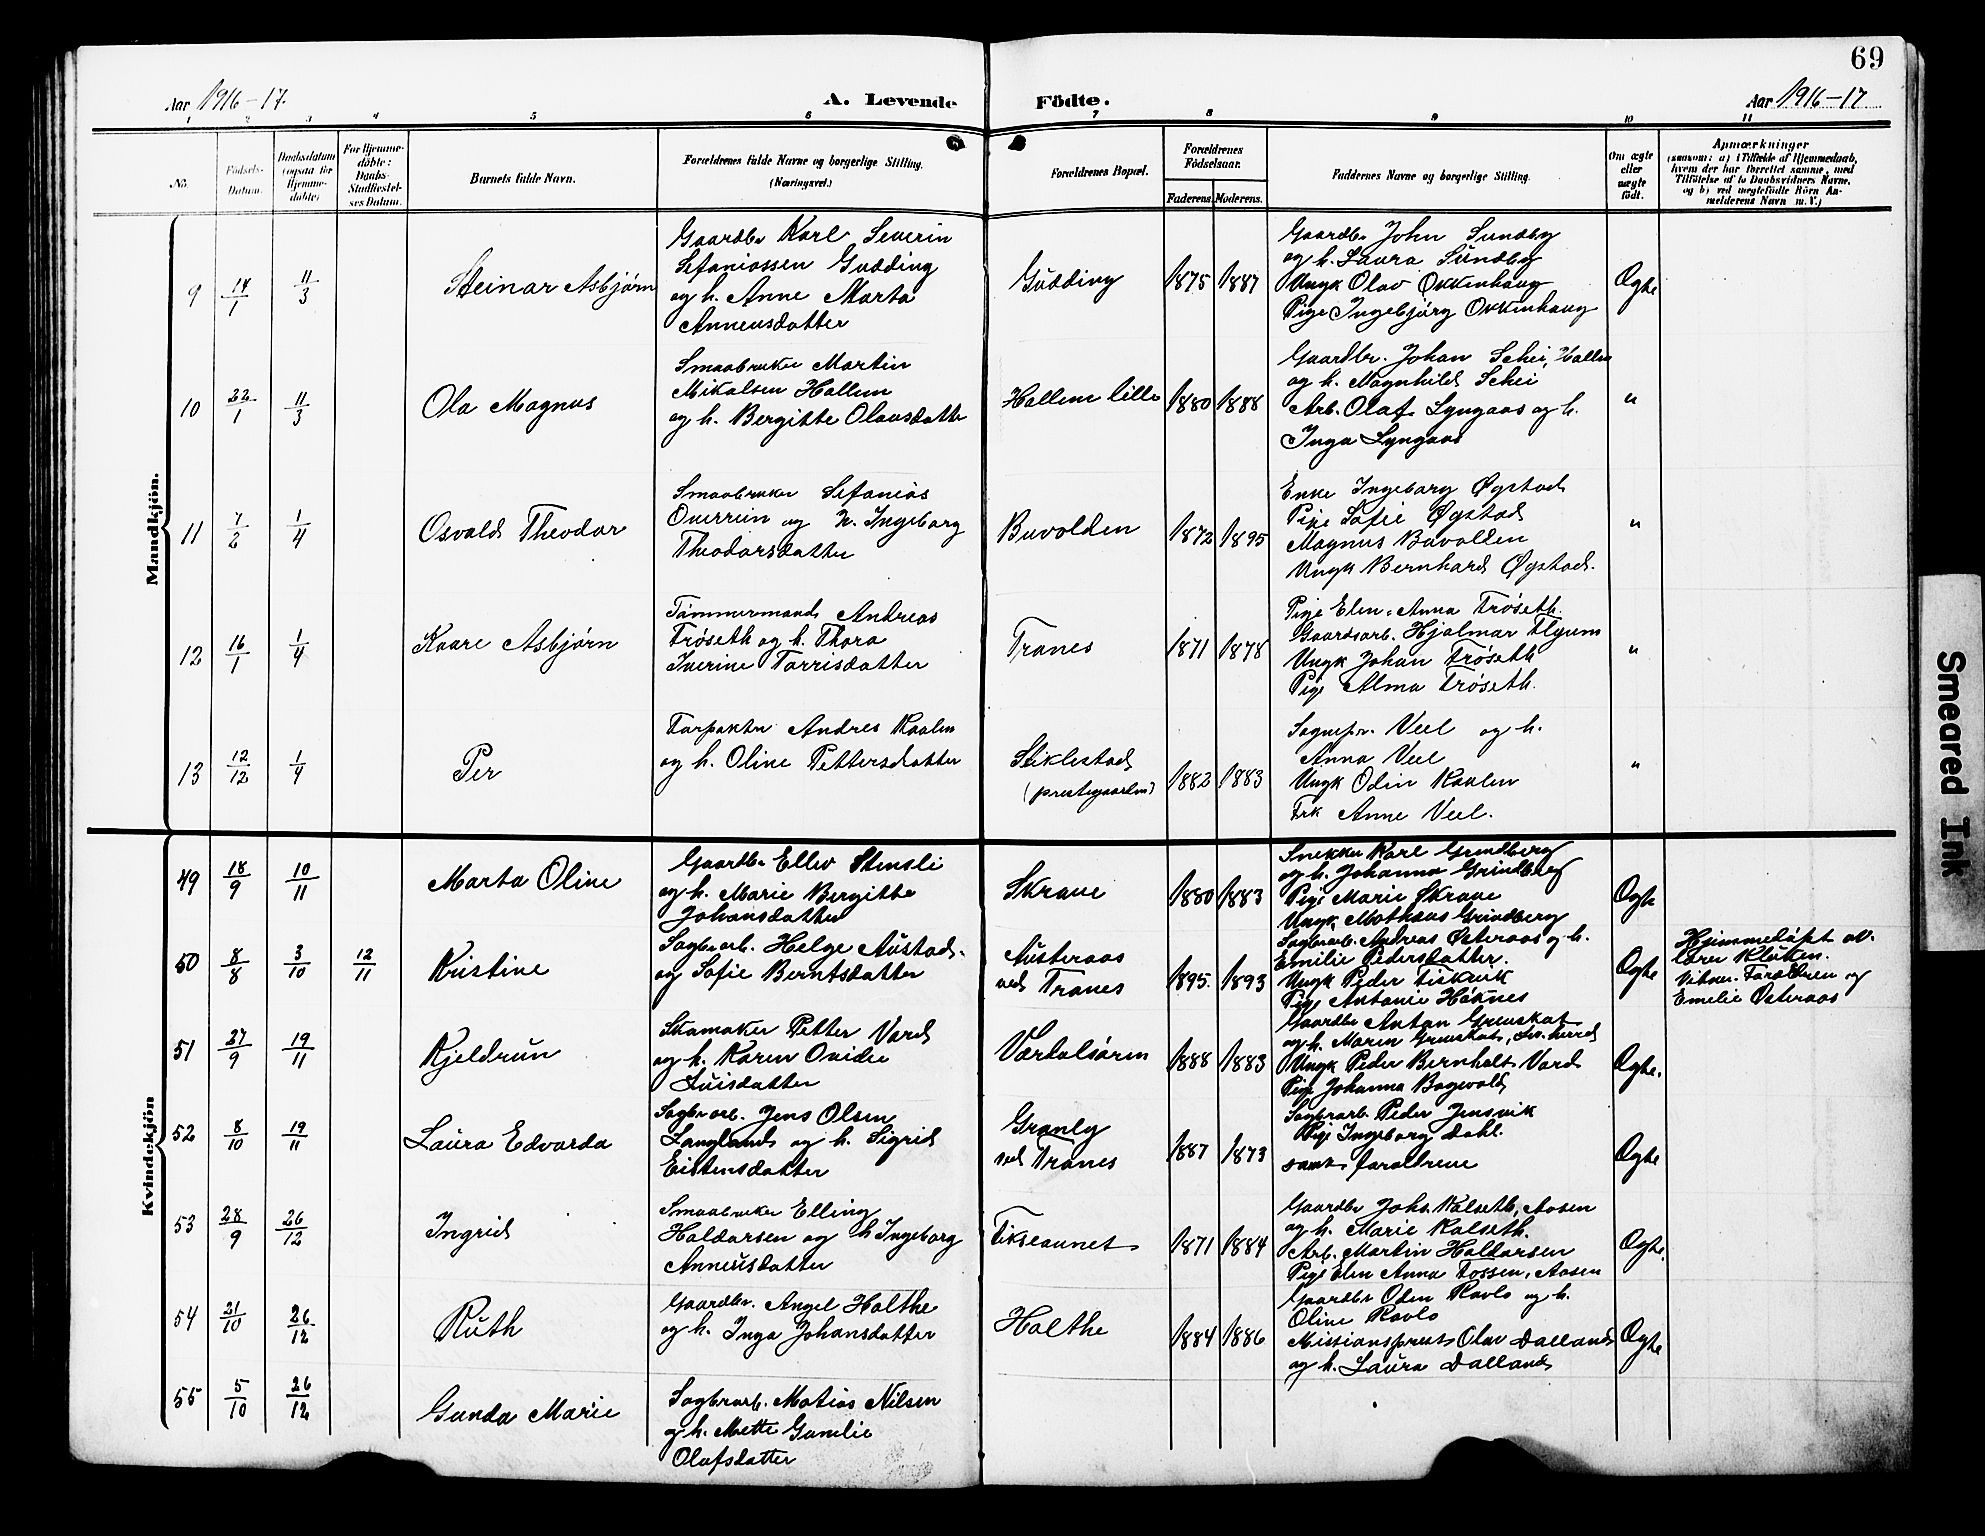 69
Aar 1916-17.
A. Levende
Födte.
Aar 1916-17
1 2 3 4 5 6 7 8 9 10 11
No.
Födsels-
Datum.
Daabsdatum
(ogsaa for
Hjemme-
döbte)
For Hjemme-
döbte:
Daabs-
Stadfæstel-
ses Datum.
Barnets fulde Navn.
Forældrenes fulde Navne og borgerlige Stilling.
(Næringsvei.)
Forældrenes Bopæl.
Forældrenes
Födselsaar.
Faderens. Moderens.
Faddernes Navne og borgerlige Stilling.
Om ægte
eller
uægte
födt.
Anmærkninger
(saasom: a) i Tilfælde af Hjemmedaab,
hvem der har forrettet samme, med
Tilföielse af to Daabsvidners Navne,
og b) ved uægtefödte Börn An-
melderens Navn m. V.)
Mandkjön.
9
14/1
11/3
Steinar Asbjørn
Gaardbr Karl Severin
Stefaniassen Gudding
og h. Anne Marta
Anneusdatter
Gudding
1875 1887
Gaardbr John Sundby
og h. Laura Sundby
Ungk Olav Okkenhaug
Pige Ingebjørg Okkenhaug
Ægte
10
22/1
11/3
Ola Magnus
Smaabruker Martin
Mikalsen Hallem
og h. Bergitte Olausdatter
Hallem lille
1880 1888
Gaardbr. Johan Schei, Hallem
og h. Magnhild Schei
Arb. Olaf Lyngaas og h.
Inga Lyngaas
"
11
7/2
1/4
Osvald Theodor
Smaabruker Stefanias
Overrein og h. Ingeborg
Theodorsdatter
Buvolden
1872 1895
Enke Ingeborg Øgstad
Pige Sofie Øgstad
Magnus Buvolden
Ungk Bernhard Øgstad.
"
12
16/1
1/4
Kaare Asbjørn
Tømmermand Andreas
Trøseth og h. Thora
Iverine Torrisdatter
Tranes
1871 1878
Pige Elen Anna Trøseth.
Gaardsarb. Hjalmar Flyum
Ungk Johan Trøseth
Pige Alma Trøseth.
"
13
12/12
1/4
Per
Forpakter Andres Kaalen
og h. Oline Pettersdatter
Stiklestad
(prestegaarden)
1882 1883
Sognepr. Veel og h.
Anna Veel
Ungk Odin Kaalen
Frk Anne Veel.
"
Kvindekjön
49
18/9
10/11
Marta Oline
Gaardbr Ellev Stensli
og h. Marie Bergitte
Johansdatter
Skrave
1880 1883
Snekker Karl Grindberg
og h. Johanna Grindberg
Pige Marie Skrave
Ungk. Mathæus Grindberg
Ægte
50
8/8
3/10
12/11
Kristine
Sagbrarb. Helge Austad.
og Sofie Berntsdatter
Austeraas
ved Tranes
1895. 1893
Sagbrarb. Andreas Østeraas og h.
Emilie Pedersdatter.
Ungk Peder Fiskvik
Pige Antonie Høknes
Ægte
Hjemmedøpt av
lærer Kluken.
Vitner: Forældrene og
Emelie Østeraas
51
27/9
19/11
Kjeldrun
Skomaker Petter Vard
og h. Karen Ovidie
Luisdatter
Værdalsøren
1888 1883
Gaardbr Anton Grevskot
og h. Maren Grevskot,
Ungk Peder Bernhott Vard
Pige Johanna Bogvold
Ægte.
52
8/10
19/11
Laura Edvarda
Sagbrarb. Jens Olsen
Langland og h. Sigrid
Eistensdatter
Granly
ved Tranes
1887 1873
Sagbrarb. Peder Jensvik
Pige Ingeborg Dahl.
samt forældrene
Ægte
53
28/9
26/12
Ingrid
Smaabruker Elling
Haldorsen og h Ingeborg
Anneusdatter
Tikseaunet
1871 1884
Gaardbr Johs. Kalseth, Aasen
og h. Marie Kalseth.
Arb. Martin Haldorsen
Pige Elen Anna Fossen, Aasen
Ægte.
54
21/10
26/12
Ruth
Gaardbr. Angel Holthe
og h. Inga Johansdatter
Holthe
1884 1886
Gaardbr Oden Ravlo og h.
Oline Ravlo
Missionsprest Olav Dalland
og h. Laura Dalland
Ægte
55
5/10
26/12
Gunda Marie
Sagbrarb. Matias Nilsen
og h. Mette Gunelie
Olafsdatter
Smeared Ink